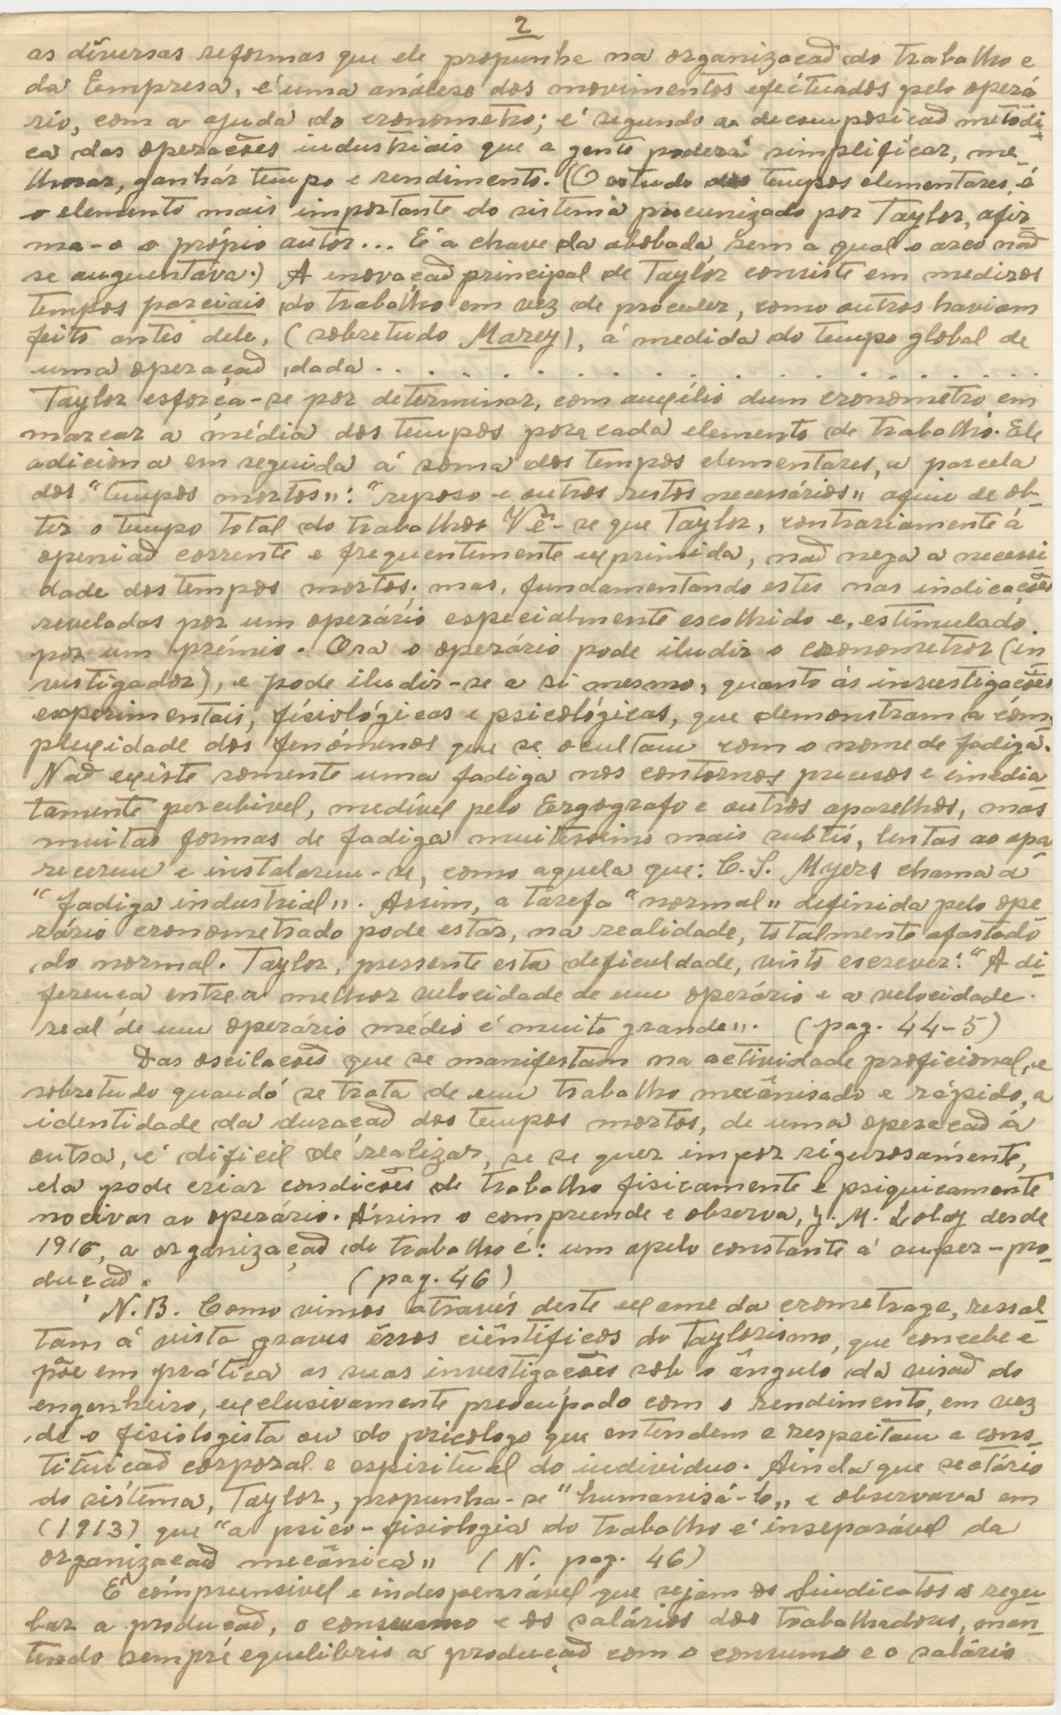 2
as diversas reformas que ele propunhe na organizacaõ do trabalho e
da Empresa, é uma análese dos movimentos eféituados pelo operá
rio, com a ajuda do cronometro; é segundo a decomposicaõ metódi-
ca das operacões industriais que a gente poderá simplificar, me-
lhorar, ganhár tempo e rendimento. (O estudo dos tempos elementares é
o elemento mais importante do sistema precunizado por Taylor, afir
ma-o o próprio autor... É a chave da abobada sem a qual o arco naõ
se auguentava.) A inovaçaõ principal de Taylor consiste em medir os
tempos parciais do trabalho em vez de proceder, como outros haviam
feito antes dele, (sobretudo Marey), á medida do tempo global de
uma operaçaõ dada . . . . . . . . . . . . . . . . . .
Taylor esforça-se por determinar, com auxélio dum cronometro em
marcar a média dos tempos pora cada elemento de trabalho. Ele
adiciona em seguida á soma dos tempos elementares, a parcela
dos "tempos mortos": "reposo e outros restos necessários" afim de ob-
ter o tempo total do trabalho. Vê-se que Taylor, contrariamente á
openiaõ corrente e frequentemente exprimida, naõ nega a necessi
dade dos tempos mortos; mas, fundamentando estes nas indicacões
reveladas por um operário especialmente escolhido e, estimulado
por um prémio. Ora o operário pode iludir o cronometror (in
vestigador), e pode iludir-se a si mesmo, quanto ás investigacões
experimentais, físiológicas e psicológicas, que demonstram a com
plexidade dos fenómenos que se ocultam com o nome de fadiga.
Naõ existe somente uma fadiga nos contornos precisos e imedia-
tamente percebivel, medível pelo Ergografo e outros aparelhos, mas
muitas formas de fadiga muitissimo mais subtis, lentas ao apa
recerem e instalarem-se, como aquela que: C. S. Myers chama a
"fadiga industrial". Assim, a tarefa "normal" definida pelo ope
rário cronometrado pode estar, na realidade, totalmente afastado
do normal. Taylor, pressente esta deficuldade, visto escrever: "A di-
ferenca entre a melhor velocidade de um operário e a velocidade
real de um operário médio é muito grande". (pag. 44-5)
Das oscilacoes que se manifestam na actividade proficional, e
sobretudo quando se trata de um trabalho mecânisado e rápido, a
identidade da duraçaõ dos tempos mortos, de uma operacaõ á
outra, é dificil de realizar, se se quer impor rigurosámente,
ela pode criar condicões de trabalho fisicamente e psiquicamente
nocivas ao operário. Assim o compreende e observa, J. M. Lahy desde
1916, a organizaçaõ do trabalho é: um apelo constante á super-pro-
duçaõ. (pag. 46)
N.B. Como vimos através deste exame da crometrage, ressal-
tam á vista graves êrros ciêntificos do Taylorismo, que concebe e
põe em prática as suas investigacões sob o ângulo da visaõ do
engenheiro, exclusivamente preocúpado com o rendimento, em vez
de o fisiólogista ou do psicologo que entendem e respeitam a cons-
tituicaõ corporal e espiritual do individuo. Ainda que sectário
do sistema, Taylor, propunha-se "humanisá-lo", e observava em
(1913) que "a psico-fisiologia do trabalho é inseparável da
organizacaõ mecânica" (N. pag. 46)
É compreensivel e indespensável que sejam os Sindicatos a regu-
lar a produçaõ, o consumo e os salários dos trabalhadores, man-
tendo sempre equelibrio a produçaõ com o consumo e o salário